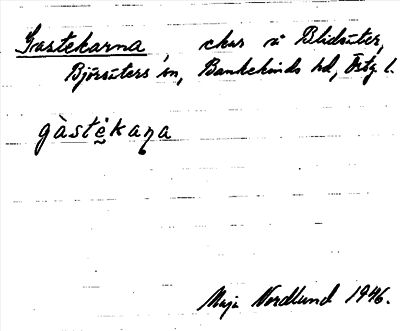 Gastekarna, ekar i Blidsäter,
Björsäters sn, Bankekinds hd, Östg. l.
gàste̬kaꞑa
Maja Nordlund 1946.